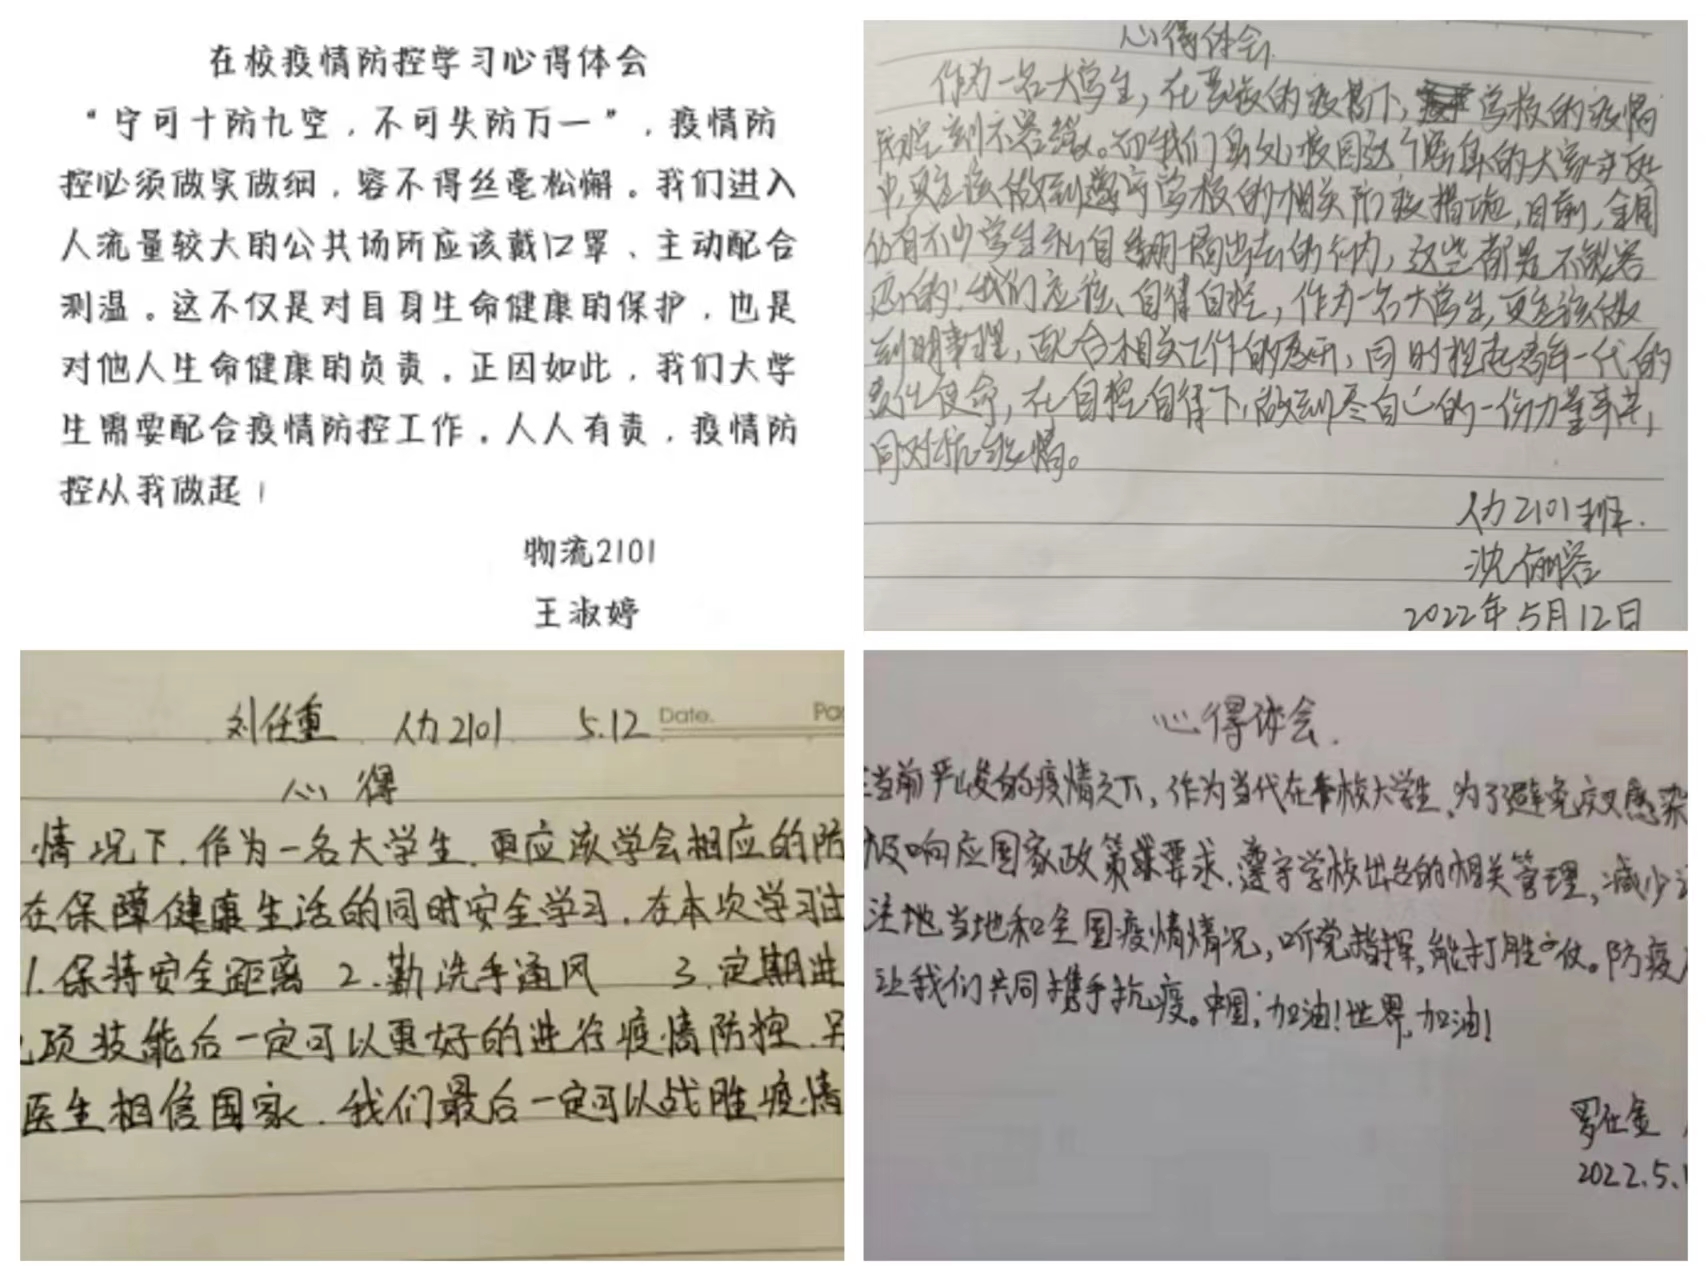 在校疫情防控学习心得体会
“宁可十防九空，不可失防万一”，疫情防
控必须做实做细，容不得丝毫松懈。我们进入
人流量较大的公共场所应该戴口罩、主动配合
测温。这不仅是对自身生命健康的保护，也是
对他人生命健康的负责。正因如此，我们大学
生需要配合疫情防控工作。人人有责，疫情防
控从我做起！
物流2101
王淑婷
心得体会
作为一名大学生，在严峻的疫情下，学校的疫情
防控刻不容缓。而我们身处校园这个集体的大家庭
中，更应该做到遵守学校的相关防疫措施，目前，全国
仍有不少学生私自翻墙出去的行为，这些都是不能容
忍的！我们应该、自律自控，作为一名大学生，更应该做
到明事理，配合相关工作的展开，同时担起青年一代的
责任使命，在自控自律下，做到尽自己的一份力量来共
同对抗疫情。
人力2101班.
沈俪容
2022年5月12日
刘任重 人力2101 5.12 Date.
心得
情况下.作为一名大学生.更应该学会相应的防
在保障健康生活的同时安全学习.在本次学习过
1.保持安全距离 2.勤洗手通风 3.定期进
项技能后一定可以更好的进行疫情防控.另
医生相信国家.我们最后一定可以战胜疫情
心得体会.
当前严峻的疫情之下，作为当代在校大学生，为了避免交叉感染
极响应国家政策要求，遵守学校出台的相关管理，减少
注地当地和全国疫情情况，听党指挥，能打胜仗。防疫
让我们共同携手抗疫。中国，加油！世界，加油！
罗仕金
2022.5.1